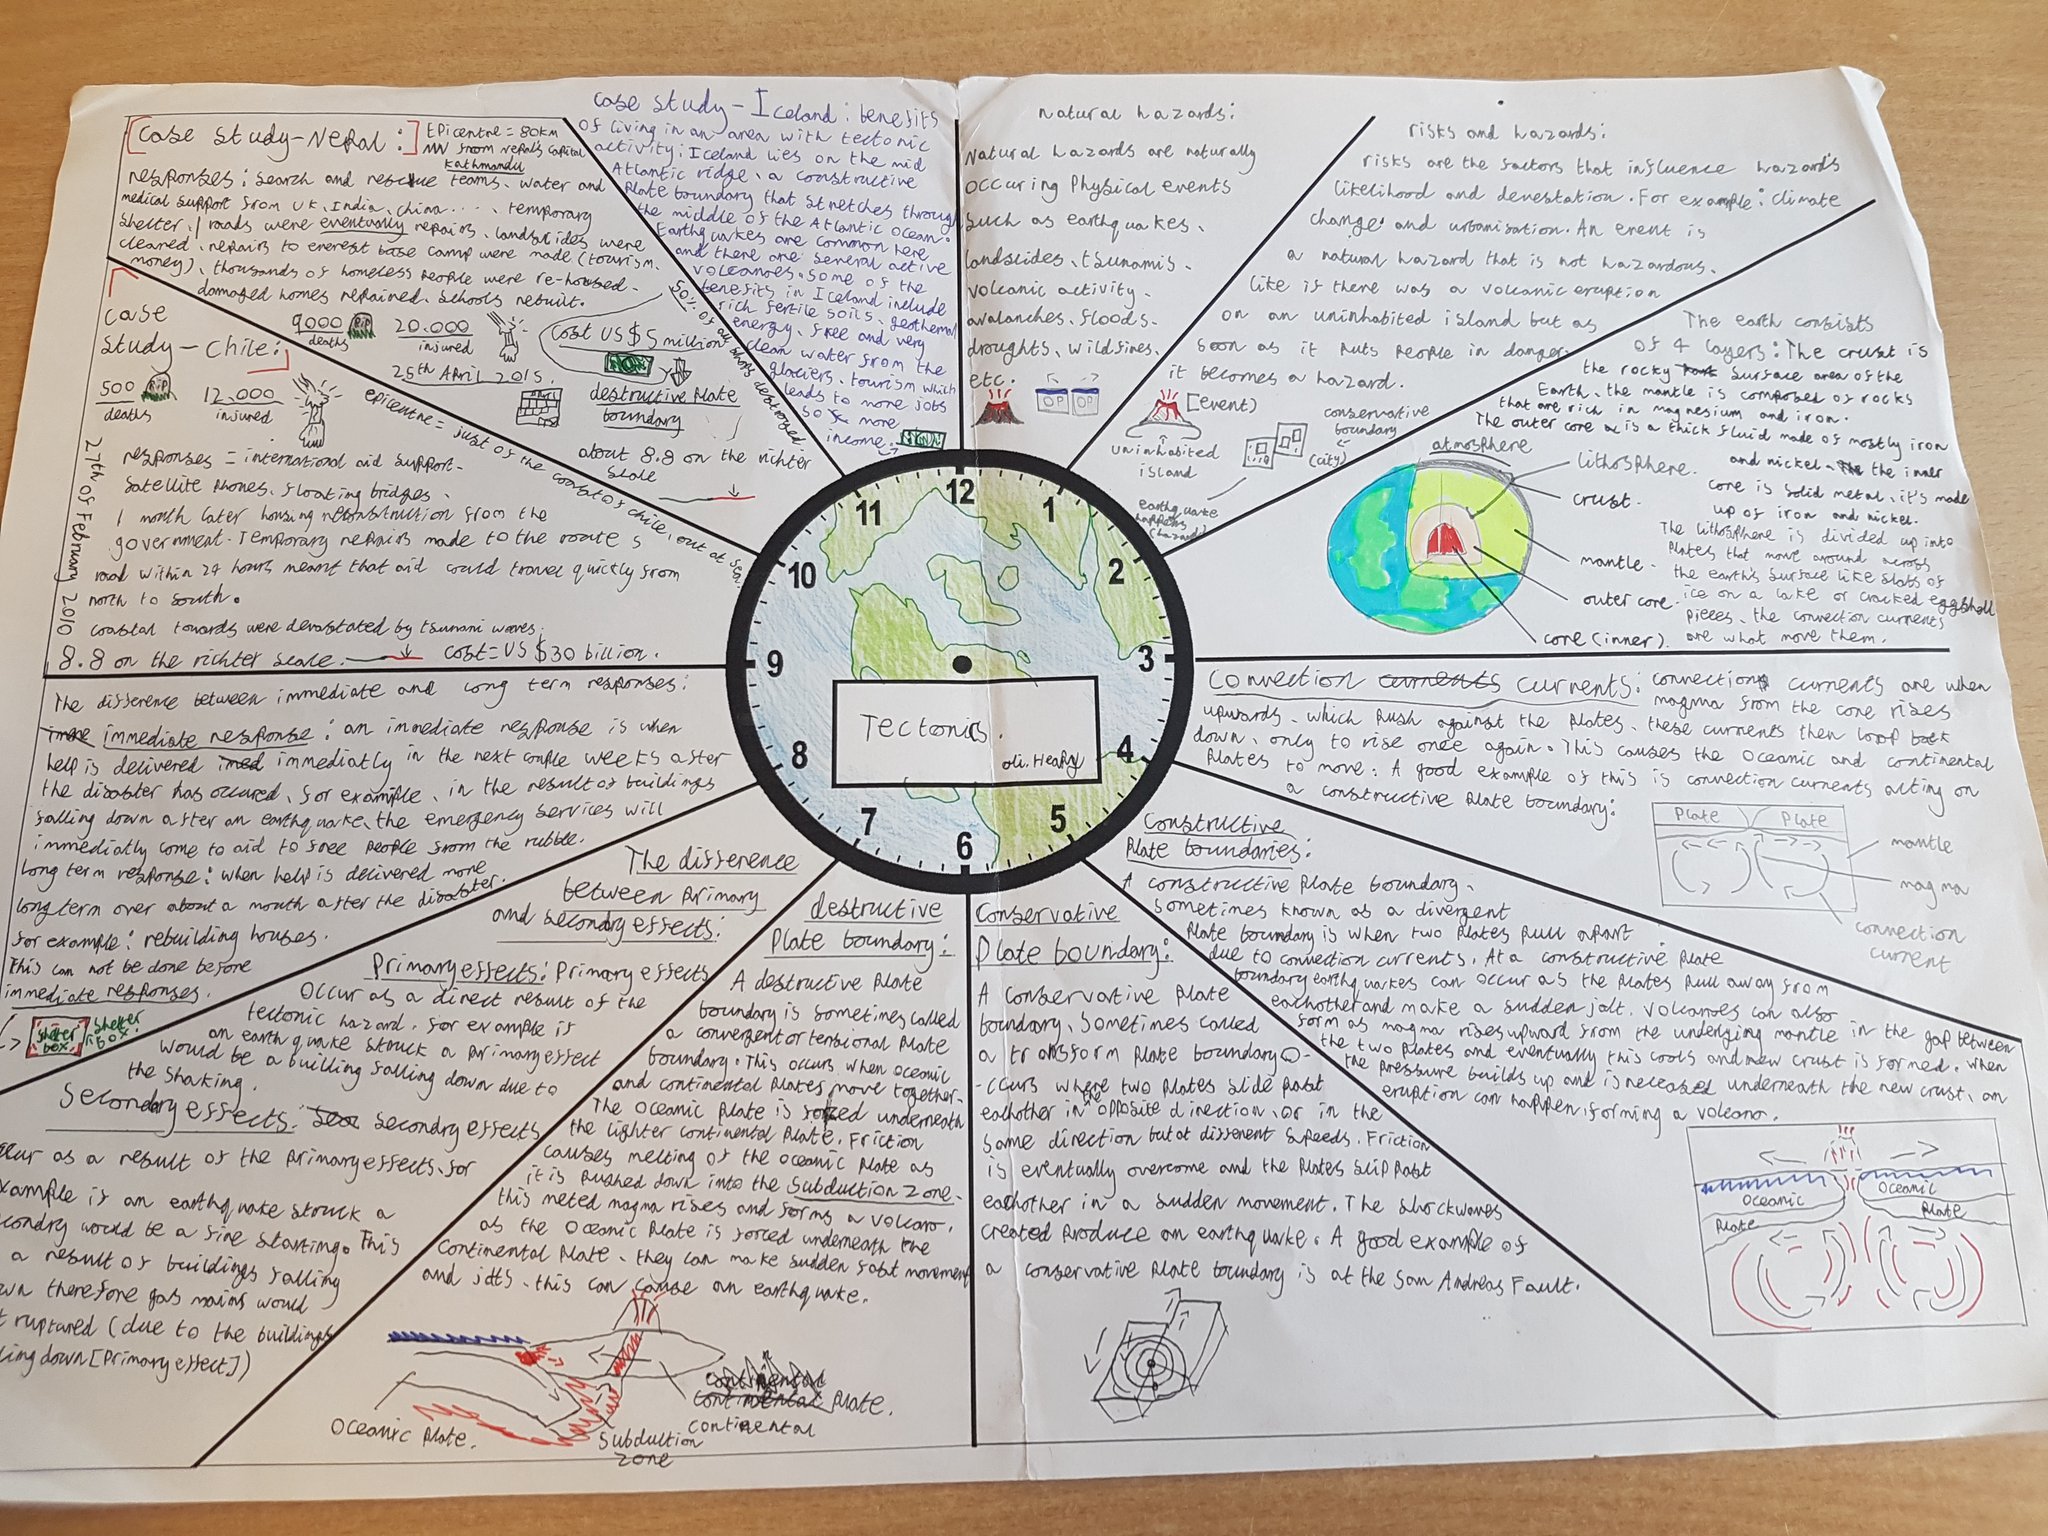 Tectonics.
oli. Heapy
12
1
2
3
4
5
6
7
8
9
10
11
natural hazards:
Natural hazards are naturally
occuring physical events
such as earthquakes,
landslides, tsunamis,
volcanic activity,
avalanches, floods,
droughts, wildfires,
etc.
risks and hazards:
risks are the factors that influence hazards
likelihood and devestation. For example: climate
change and urbanisation. An event is
a natural hazard that is not hazardous.
like if there was a volcanic eruption
on an uninhabited island but as
soon as it puts people in danger
it becomes a hazard.
[event)
uninhabited
island
conservative
boundary
(city)
earthquake
happens
(hazard)
The earth consists
of 4 layers: The crust is
the rocky surface area of the
Earth, the mantle is composed of rocks
that are rich in magnesium and iron.
The outer core is a thick fluid made of mostly iron
and nickel. the inner
core is solid metal, it's made
up of iron and nickel.
The lithosphere is divided up into
plates that move around across
the earth's surface like slabs of
ice on a lake or cracked eggshell
pieces, the convection currents
are what move them.
atmosphere
lithosphere.
crust.
mantle.
outer core.
core (inner).
Convection currents currents: connection currents are when
magma from the core rises
upwards, which push against the plates, these currents then loop back
down, only to rise once again. This causes the oceanic and continental
plates to move. A good example of this is connection currents acting on
a constructive plate boundary:
Plate
Plate
mantle
magma
connection
current
Constructive
Plate boundaries:
A constructive plate boundary,
sometimes known as a divergent
plate boundary is when two plates pull apart
due to connection currents. At a constructive plate
boundary earthquakes can occur as the plates pull away from
eachother and make a sudden jolt. volcanoes can also
form as magma rises upward from the underlying mantle in the gap between
the two plates and eventually this cools and new crust is formed. when
the pressure builds up and is released underneath the new crust, an
eruption can happen, forming a volcano.
Oceanic
Plate
Oceanic
Plate
Conservative
Plate boundary:
A conservative plate
boundary, sometimes called
a transform plate boundary o-
-ccurs where two plates slide past
eachother in the opposite direction, or in the
same direction but at different speeds. Friction
is eventually overcome and the plates slip past
eachother in a sudden movement. The shockwaves
created produce an earthquake. A good example of
a conservative plate boundary is at the San Andreas Fault.
destructive
Plate boundary:
A destructive plate
boundary is sometimes called
a convergent or tensional plate
boundary. This occurs when oceanic
and continental plates move together.
The oceanic plate is forced underneath
the lighter continental plate. Friction
causes melting of the oceanic plate as
it is pushed down into the subduction zone.
this meted magma rises and forms a volcano.
as the oceanic plate is forced underneath the
continental plate, they can make sudden fast movement
and jolts, this can cause an earthquake.
Oceanic Plate.
Subduction
zone
continental Plate.
continental
The difference
between primary
and secondary effects:
Primary effects: Primary effects
occur as a direct result of the
tectonic hazard. for example is
an earthquake struck a primary effect
would be a builling falling down due to
the shaking.
Secondary effects: secondry effects
occur as a result of the primary effects. for
example is an earthquake struck a
secondry would be a fire starting. This
a result of buildings falling
down therefore gas mains would
ruptured (due to the buildings
falling down [primary effect])
The difference between immediate and long term responses:
immediate response: an immediate response is when
help is delivered immediatly in the next couple weeks after
the disaster has occured, for example, in the result of buildings
falling down after an earthquake, the emergency services will
immediatly come to aid to free people from the rubble.
long term response: when help is delivered more
long term over about a month after the disaster.
for example: rebuilding houses.
This can not be done before
immediate responses.
shelter
box
shelter
box.
case
study - Chile:
500
deaths
RIP
12,000
injured
27th of February 2010
epicentre = just of the coast of chile, out at sea.
responses = international aid support-
satellite phones, floating bridges.
1 month later housing reconstruction from the
government. Temporary repairs made to the route 5
road within 24 hours meant that aid could travel quickly from
north to south.
coastal towards were devastated by tsunami waves.
8.8 on the richter scale.
cost = US $30 billion.
Case study-Nepal:
Epicentre = 80km
NW from nepal's capital
Kathmandu
responses: search and rescue teams, water and
medical support from UK, India, china.... temporary
shelter, roads were eventually repairs, landslides were
cleared, repairs to everest base camp were made (tourism
money), thousands of homeless people were re-housed.
damaged homes repaired. schools rebuilt.
9000
deaths
RIP
20,000
injured
25th April 2015.
cost US $5 million
50% of all shops destroyed
destructive plate
boundary
about 8.8 on the richter
scale
case study - Iceland: benefits
of living in an area with tectonic
activity: Iceland lies on the mid
Atlantic ridge, a constructive
plate boundary that stretches through
the middle of the Atlantic Ocean.
Earthquakes are common here
and there are several active
volcanoes. some of the
benefits in Iceland include
rich fertile soils, geothermal
energy, free and very
clean water from the
glaciers, tourism which
leads to more jobs
so more
income.